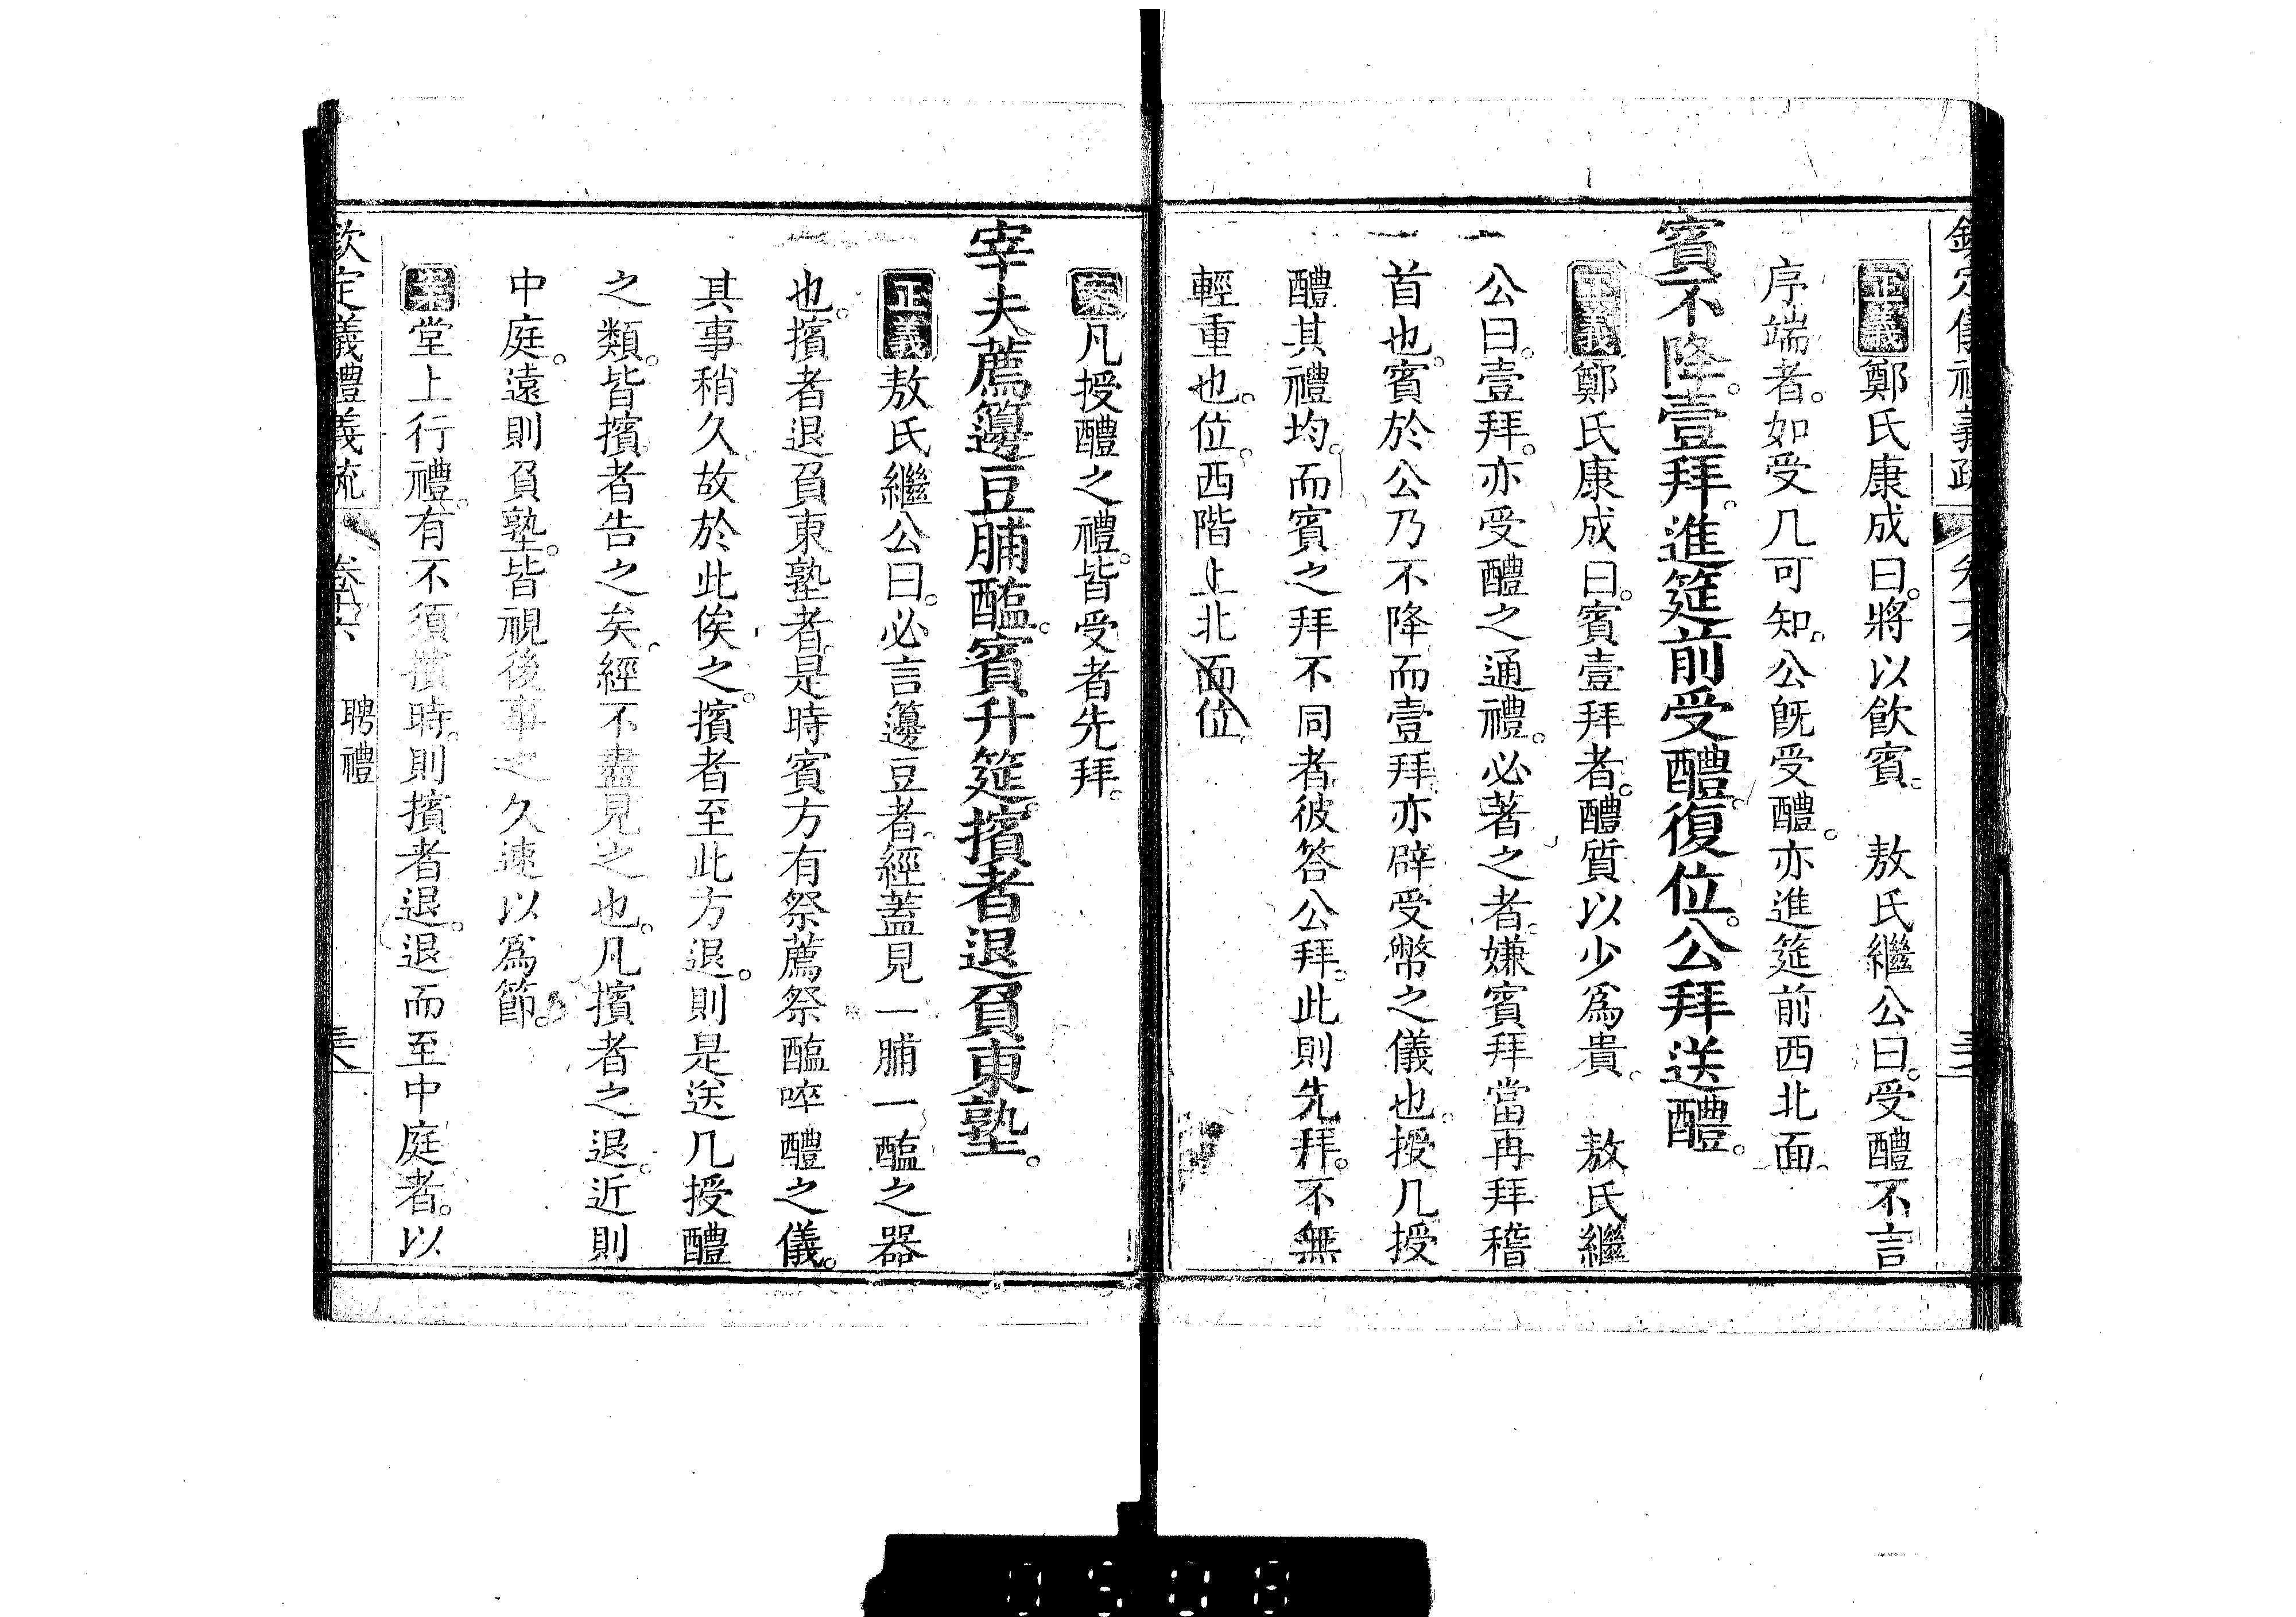 欽定儀禮義疏
正義鄭氏康成曰。將以飲賓。 敖氏繼公曰。受醴不言
序端者。如受几可知。公旣受醴。亦進筵前西北面。
賓不降。壹拜。進筵前受醴。復位。公拜送醴。
正義鄭氏康成曰。賓壹拜者。醴質以少爲貴。 敖氏繼
公曰。壹拜。亦受醴之通禮。必著之者。嫌賓拜當再拜稽
首也。賓於公乃不降而壹拜。亦辟受幣之儀也。授几授
醴其禮均。而賓之拜不同者。彼答公拜。此則先拜。不無
輕重也。位。西階上北面位。
案凡授醴之禮。皆受者先拜。
宰夫薦籩豆脯醢。賓升筵。擯者退負東塾。
正義敖氏繼公曰。必言籩豆者。經蓋見一脯一醢之器
也。擯者退負東塾者。是時賓方有祭薦祭醢啐醴之儀。
其事稍久。故於此俟之。擯者至此方退。則是送几授醴
之類。皆擯者告之矣。經不盡見之也。凡擯者之退。近則
中庭。遠則負塾。皆視後事之久速以爲節。
案堂上行禮。有不須擯時。則擯者退。退而至中庭者。以
欽定儀禮義疏 卷十六 聘禮